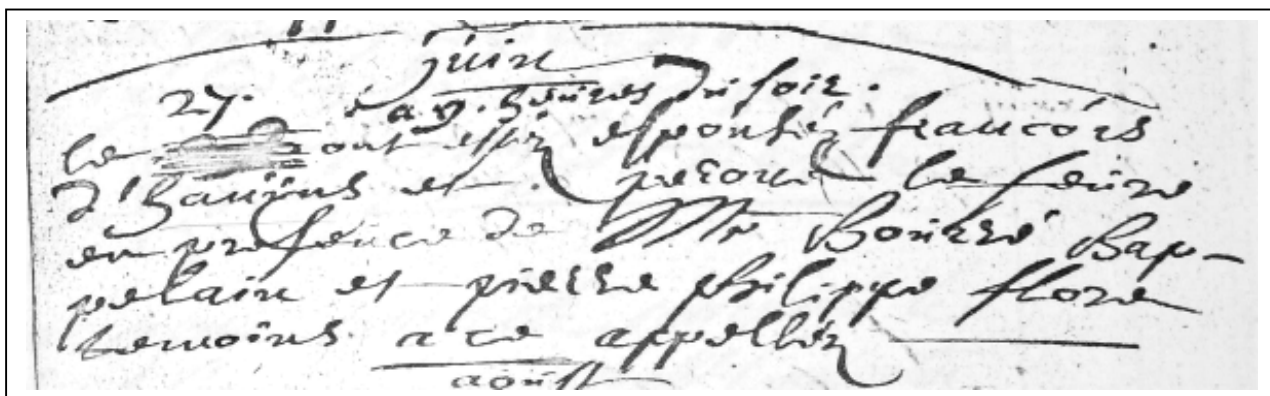 juin
27. a 9. heures du soir.
le ont estéz espouséz francóis
d'haujus et peronne le feure
en presence de Mr Bourré Bap-
pelain et pierre philippe flore
temoins a ce appelléz
aoust